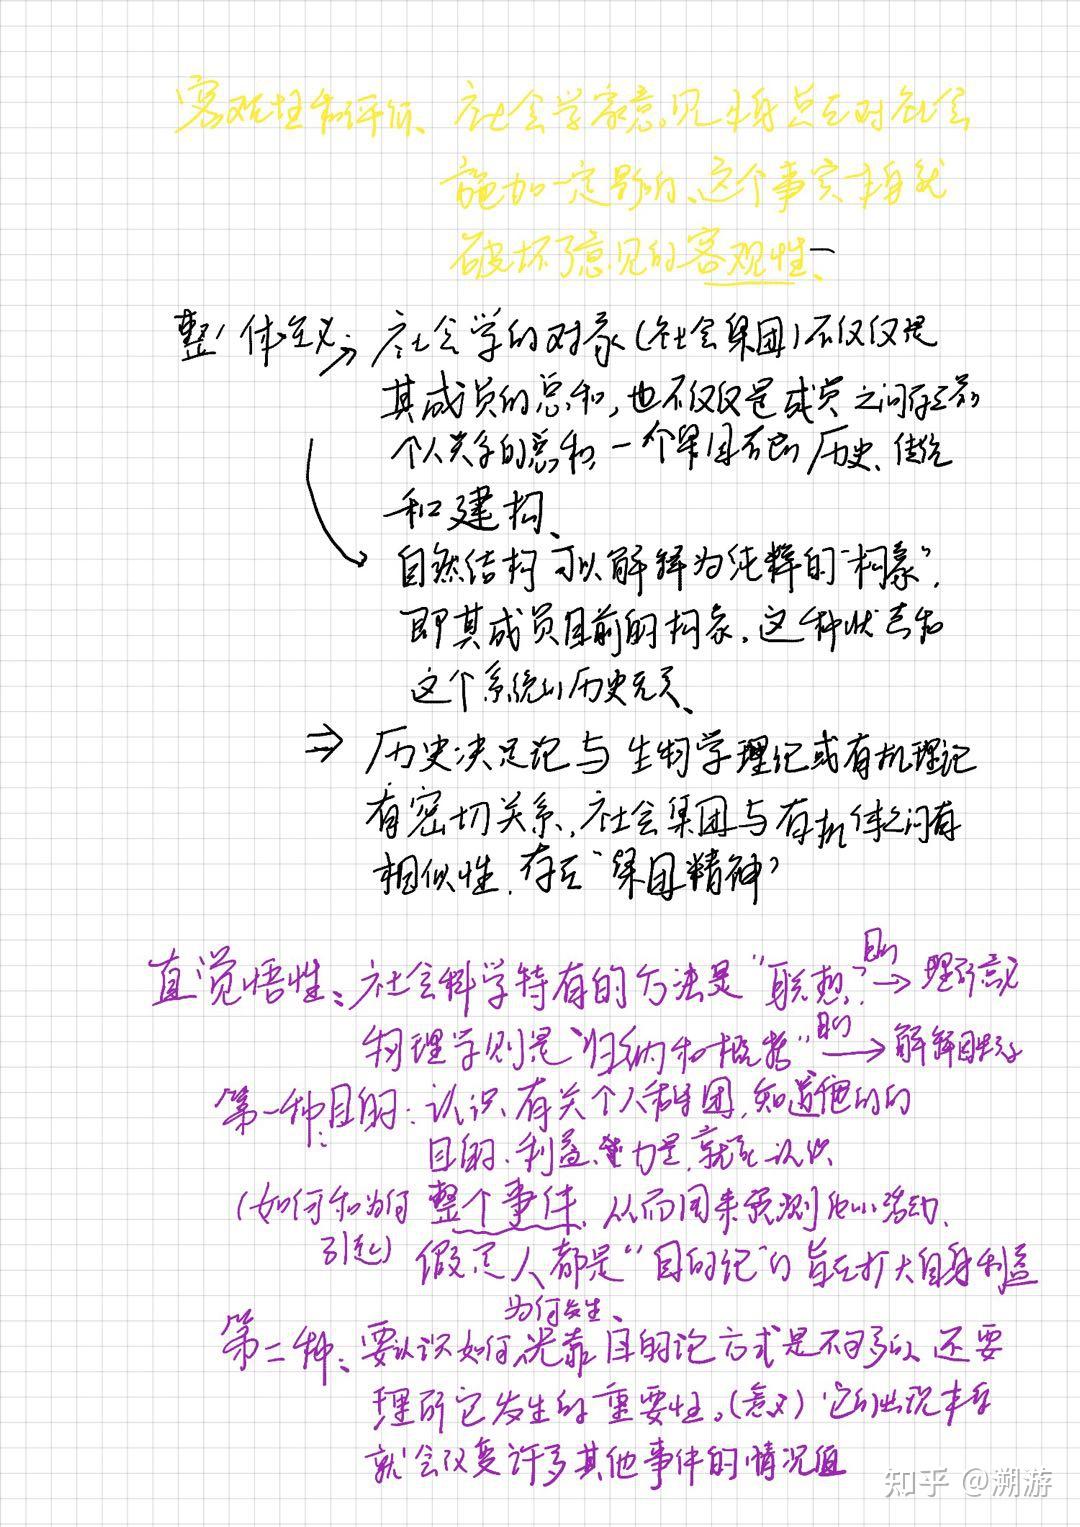 客观性和评价、社会学家意见本身旨在对社会
施加一定影响、这个事实本身就
破坏了意见的客观性、
整体主义→社会学的对象(社会集团)不仅仅是
其成员的总和,也不仅仅是成员之间存在的
个人关系的总和,一个集团有历史、传统
和建构、
自然结构可以解释为纯粹的“构象”,
即其成员目前的构象,这种状态和
这个系统的历史无关、
⇒历史决定论与生物学理论或有机理论
有密切关系,社会集团与有机体之间有
相似性,存在“集团精神”
直觉悟性:社会科学特有的方法是“联想”目的→理解意义
物理学则是“归纳和概括”目的→解释因果
第一种:目的:认识有关个人和集团,知道他们的
目的、利益、力量,就能认识
(如何和为何 整个事件,从而用来预测他的活动,
引起)假定人都是“目的论”的旨在扩大自身利益
为何发生、
第二种:要认识如何 光靠目的论方式是不可以 还要
理解它发生的重要性。(意义)它的出现本身
就会改变许多其他事件的情况值
知乎 @溯游